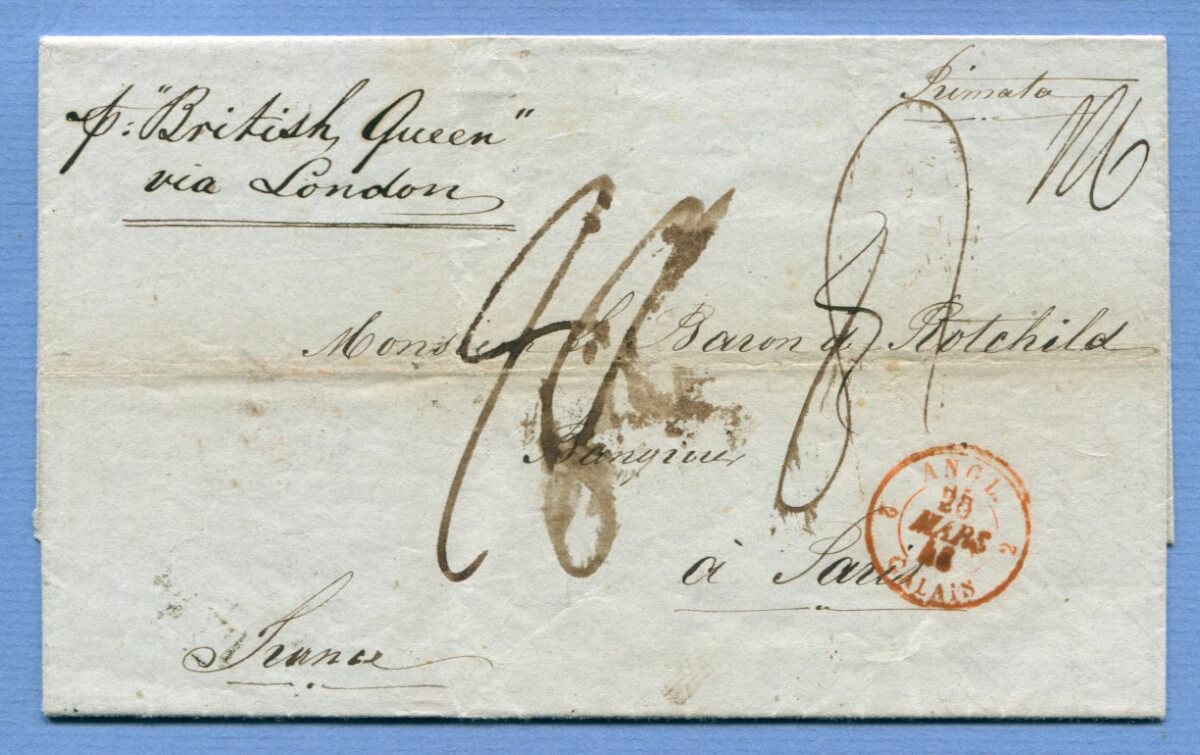 Primata
p: "British Queen"
via London
Monsieur le Baron de Rotchild
Banquier
à Paris
France
ANGL.
2 25 2
MARS
CALAIS